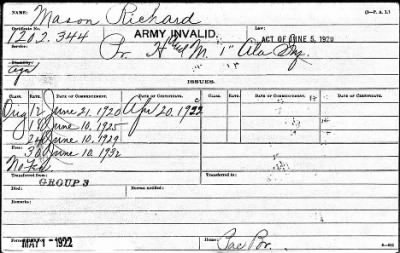 NAME: Mason Richard (3—P. A. I.)
Certificate No. 1202.344 ARMY INVALID. Law: ACT OF JUNE 5, 1920
Service: Pr. H and M. 1" Ala
Disability: age
ISSUES.
CLASS. RATE. DATE OF COMMENCEMENT. DATE OF CERTIFICATE. CLASS. RATE. DATE OF COMMENCEMENT. DATE OF CERTIFICATE.
Orig 12 June 21, 1920 Apr 20, 1922
18 June 10, 1925
24 June 10, 1929
From: 30 June 10, 1932
Transferred from: Transferred to:
GROUP 3
Died: Bureau notified:
Remarks:
MAY 1 - 1922 Home: Pac Br.